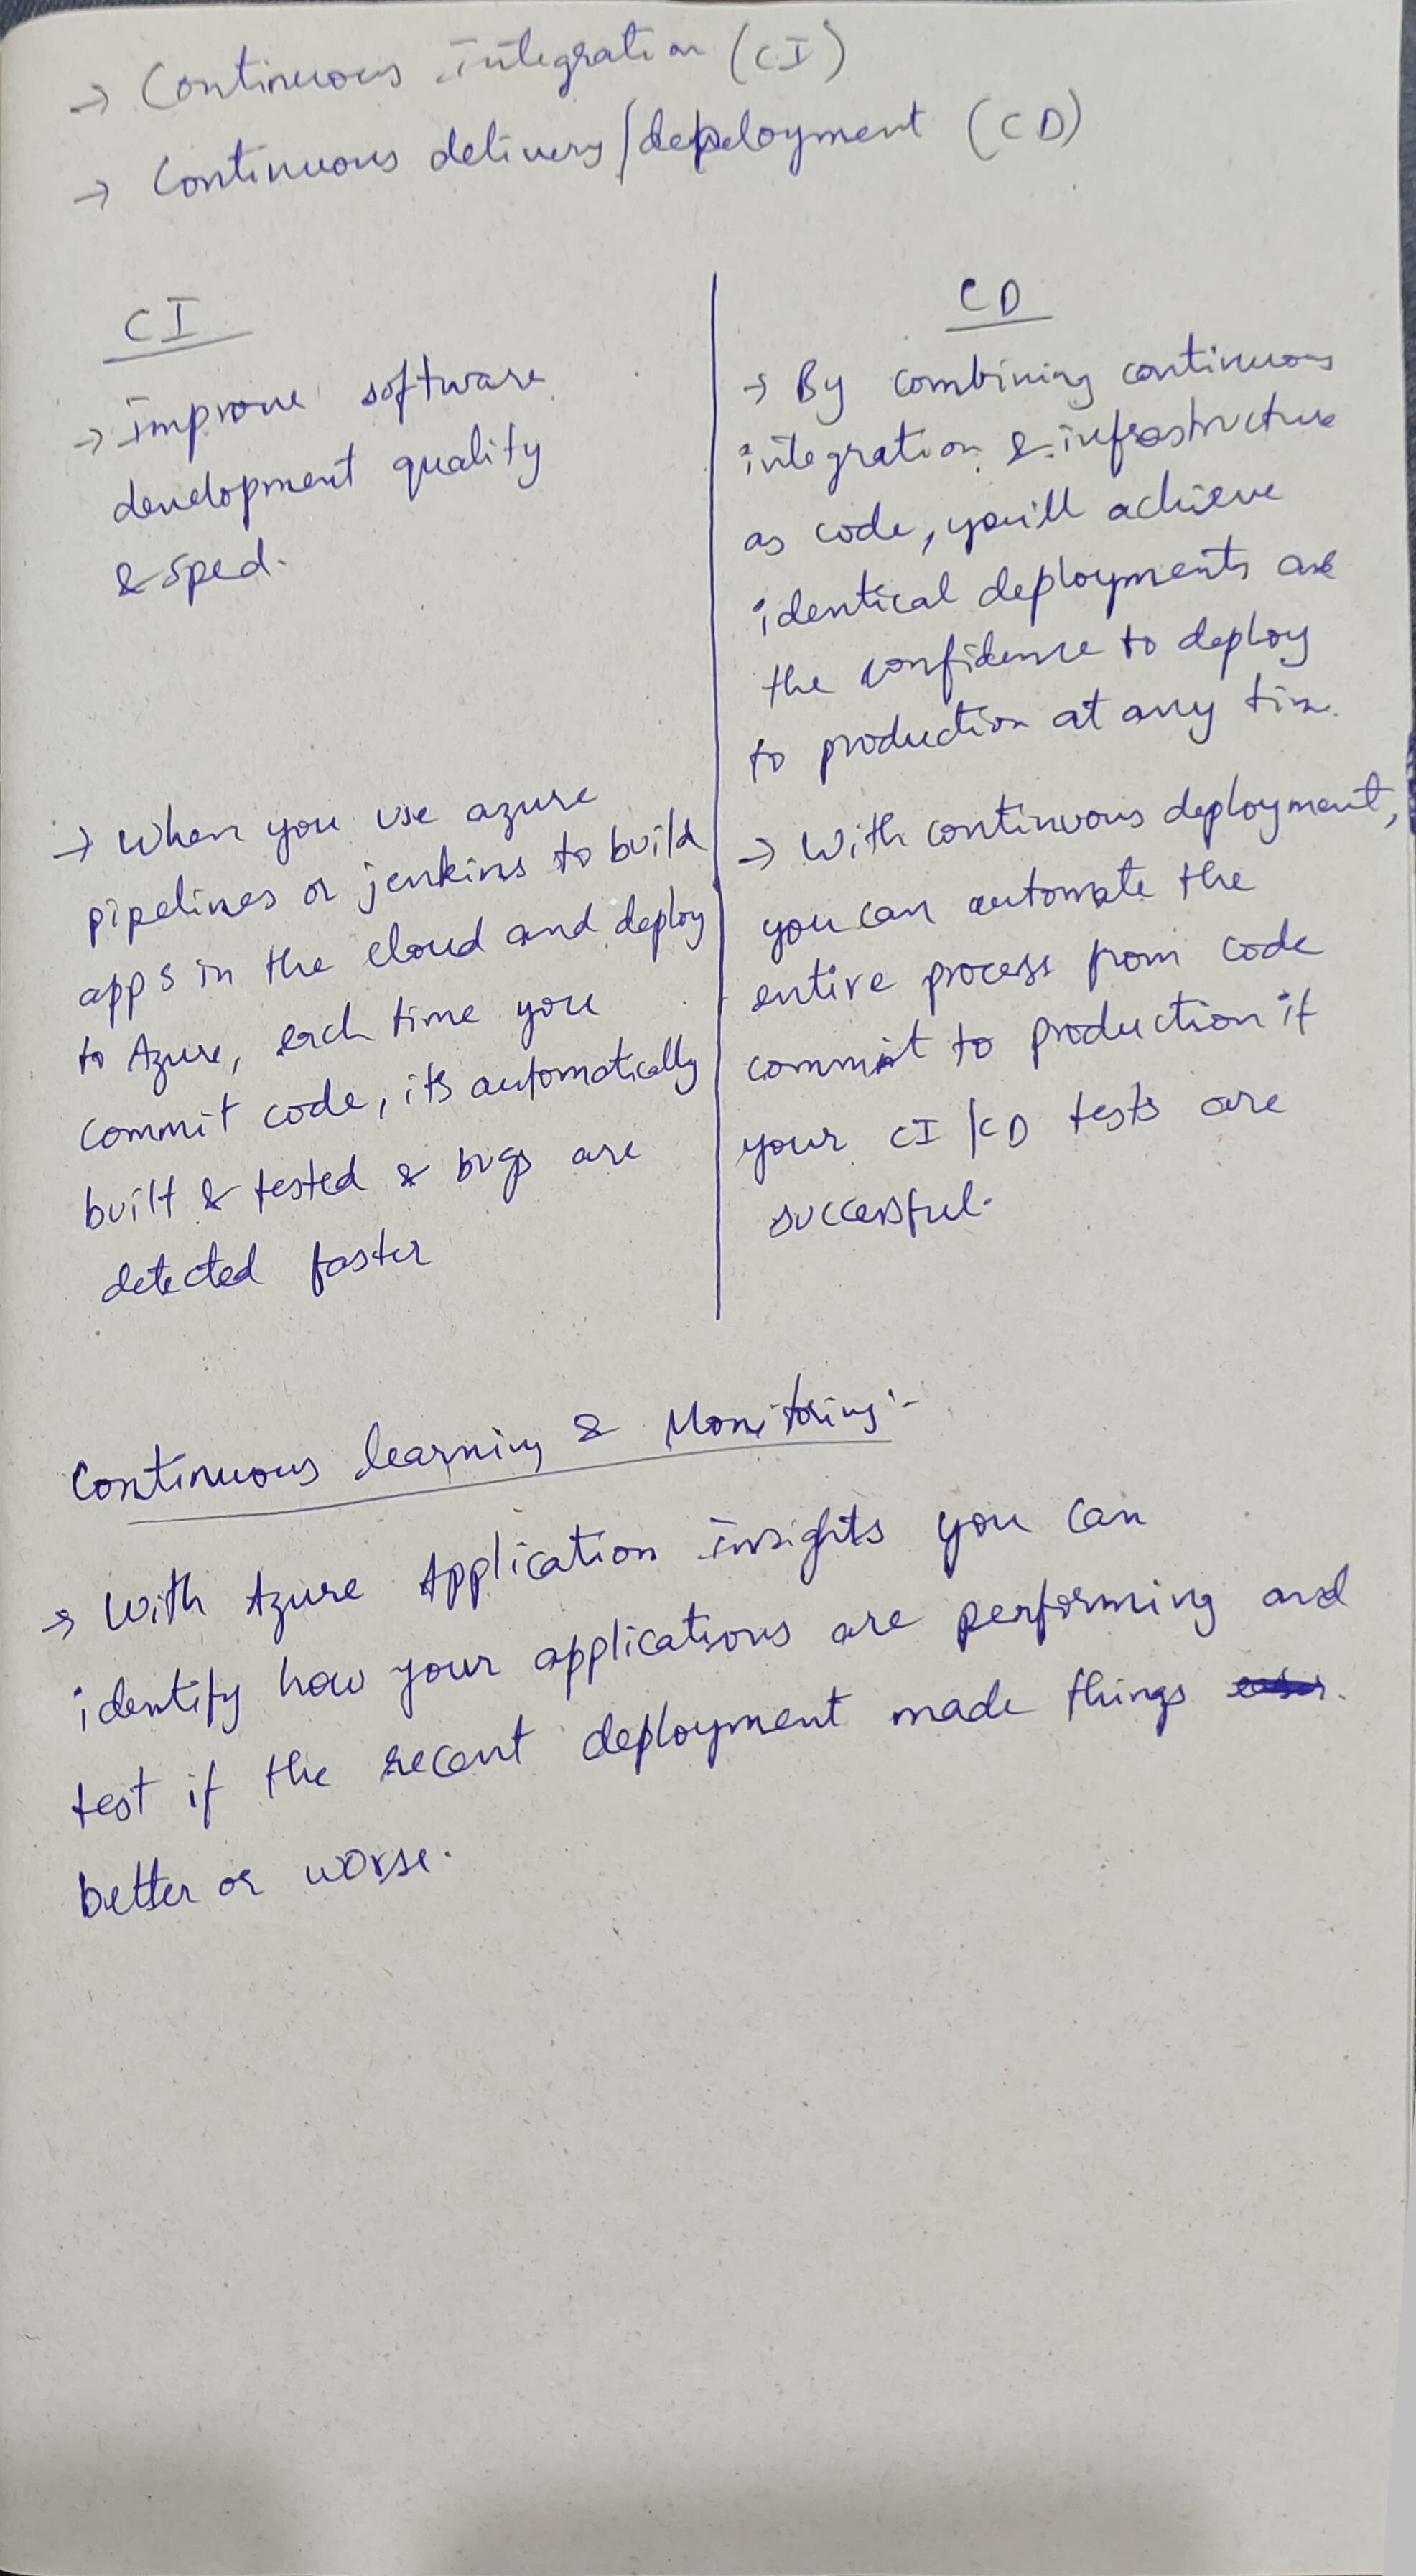 → Continuous integration (CI)
→ Continuous delivery/depeloyment (CD)
CI
→ improve software
development quality
& sped.
→ When you use azure
pipelines or jenkins to build
apps in the cloud and deploy
to Azure, each time you
commit code, its automatically
built & tested & bugs are
detected faster
CD
→ By combining continuous
integration & infrastructure
as code, you'll achieve
identical deployments and
the confidence to deploy
to production at any time.
→ With continuous deployment,
you can automate the
entire process from code
commit to production if
your CI/CD tests are
successful.
Continuous learning & Monitoring:-
→ With Azure Application insights you can
identify how your applications are performing and
test if the recent deployment made things
better or worse.